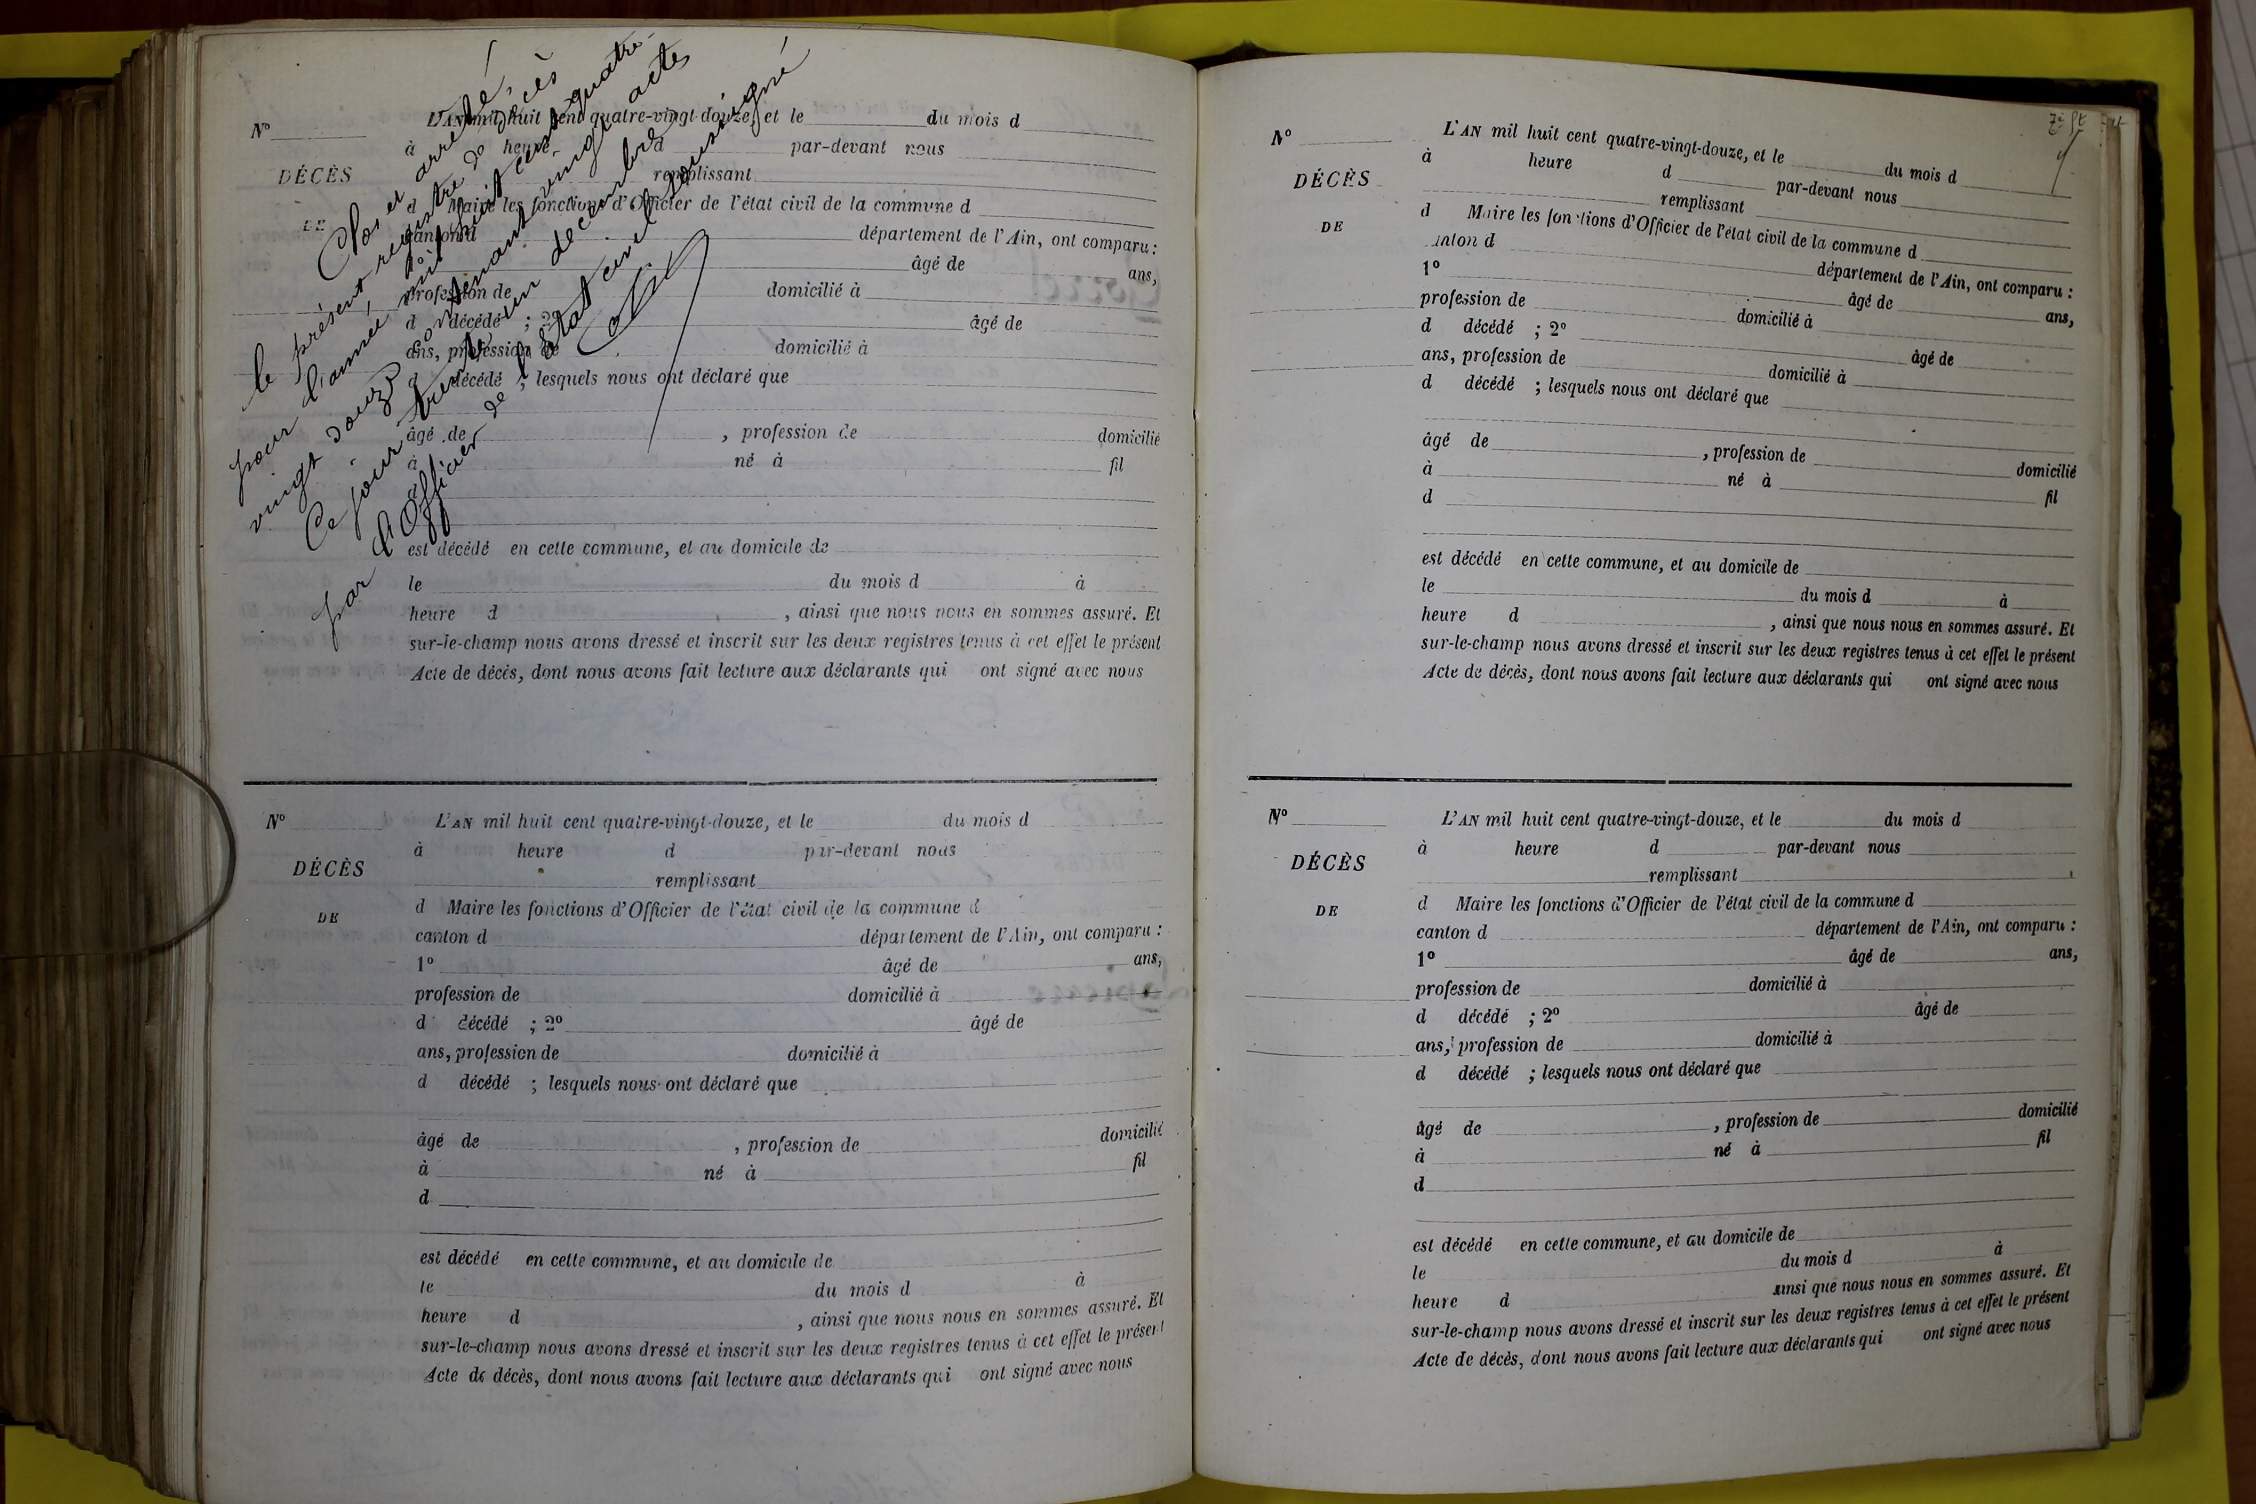 Clos et arrêté,
le présent registre de décès
pour l'année mil huit cent quatre-
vingt douze contenant vingt actes
Ce jour trente un décembre
par l'Officier de l'état civil soussigné
N°
DÉCÈS
DE
L'AN mil huit cent quatre-vingt-douze, et le du mois d
à heure d par-devant nous
remplissant
d Maire les fonctions d'Officier de l'état civil de la commune d
canton d département de l'Ain, ont comparu :
âgé de ans,
profession de domicilié à
d décédé ; 2º âgé de
ans, profession de domicilié à
d décédé ; lesquels nous ont déclaré que
âgé de , profession de domicilié
à né à fil
est décédé en cette commune, et au domicile de
le du mois d à
heure d , ainsi que nous nous en sommes assuré. Et
sur-le-champ nous avons dressé et inscrit sur les deux registres tenus à cet effet le présent
Acte de décès, dont nous avons fait lecture aux déclarants qui ont signé avec nous
N°
DÉCÈS
DE
L'AN mil huit cent quatre-vingt-douze, et le du mois d
à heure d par-devant nous
remplissant
d Maire les fonctions d'Officier de l'état civil de la commune d
canton d département de l'Ain, ont comparu :
1º âgé de ans,
profession de domicilié à
d décédé ; 2º âgé de
ans, profession de domicilié à
d décédé ; lesquels nous ont déclaré que
âgé de , profession de domicilié
à né à fil
d
est décédé en cette commune, et au domicile de
le du mois d à
heure d , ainsi que nous nous en sommes assuré. Et
sur-le-champ nous avons dressé et inscrit sur les deux registres tenus à cet effet le présent
Acte de décès, dont nous avons fait lecture aux déclarants qui ont signé avec nous
N°
DÉCÈS
DE
L'AN mil huit cent quatre-vingt-douze, et le du mois d
à heure d par-devant nous
remplissant
d Maire les fonctions d'Officier de l'état civil de la commune d
canton d département de l'Ain, ont comparu :
1º âgé de ans,
profession de domicilié à
d décédé ; 2º âgé de
ans, profession de domicilié à
d décédé ; lesquels nous ont déclaré que
âgé de , profession de domicilié
à né à fil
d
est décédé en cette commune, et au domicile de
le du mois d à
heure d , ainsi que nous nous en sommes assuré. Et
sur-le-champ nous avons dressé et inscrit sur les deux registres tenus à cet effet le présent
Acte de décès, dont nous avons fait lecture aux déclarants qui ont signé avec nous
N°
DÉCÈS
DE
L'AN mil huit cent quatre-vingt-douze, et le du mois d
à heure d par-devant nous
remplissant
d Maire les fonctions d'Officier de l'état civil de la commune d
canton d département de l'Ain, ont comparu :
1º âgé de ans,
profession de domicilié à
d décédé ; 2º âgé de
ans, profession de domicilié à
d décédé ; lesquels nous ont déclaré que
âgé de , profession de domicilié
à né à fil
d
est décédé en cette commune, et au domicile de
le du mois d à
heure d ainsi que nous nous en sommes assuré. Et
sur-le-champ nous avons dressé et inscrit sur les deux registres tenus à cet effet le présent
Acte de décès, dont nous avons fait lecture aux déclarants qui ont signé avec nous